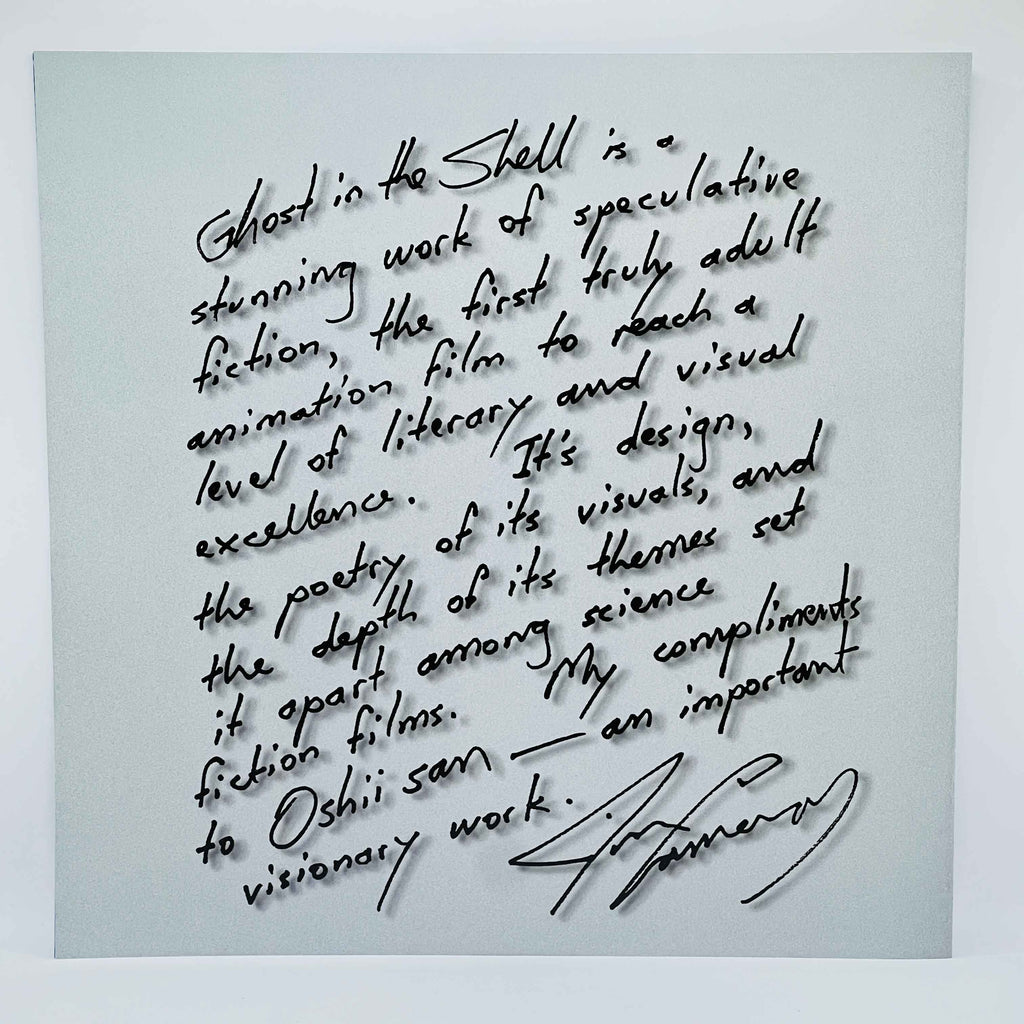 Ghost in the Shell is a
stunning work of speculative
fiction, the first truly adult
animation film to reach a
level of literary and visual
excellence. It's design,
the poetry of its visuals, and
the depth of its themes set
it apart among science
fiction films. My compliments
to Oshii san — an important
visionary work. Jim Cameron